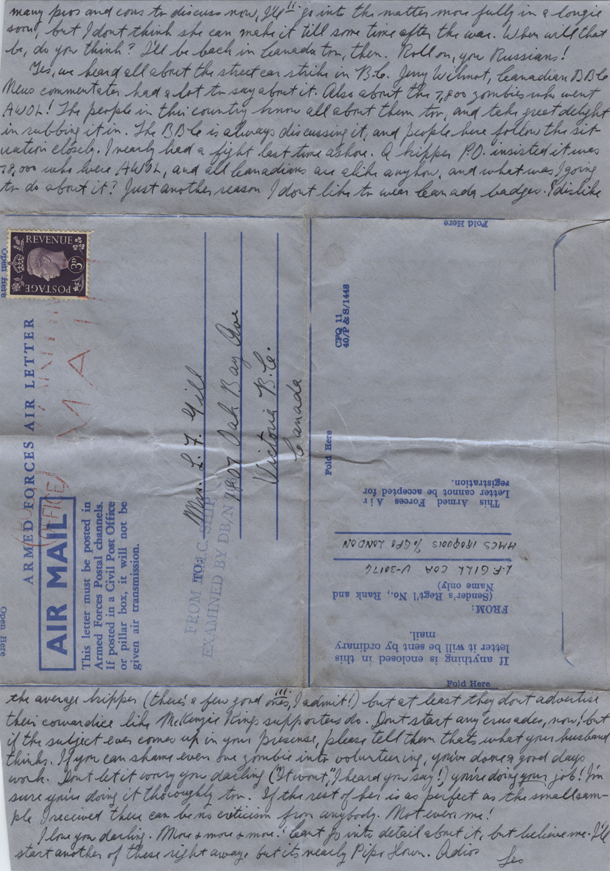 many pros and cons to discuss now, I'll go into the matter more fully in a longie
soon, but I don't think she can make it till some time after the war. When will that
be, do you think? I'll be back in Canada too, then. Roll on, you Russians!
Yes, we heard all about the street car strike in B.C. Jerry Wilmot, Canadian BBC
News commentator had a lot to say about it. Also about the 7,800 zombies who went
AWOL! The people in this country know all about them too, and take great delight
in rubbing it in. The BBC is always discussing it, and people here follow the sit-
uation closely. I nearly had a fight last time ashore. A kipper P.O. insisted it was
78,000 who were AWOL, and all Canadians are alike anyhow, and what was I going
to do about it? Just another reason I don't like to wear Canada badges. I dislike
Fold Here
Open Here
POSTAGE REVENUE
3D
ARMED FORCES AIR LETTER
AIR MAIL
This letter must be posted in
Armed Forces Postal channels.
If posted in a Civil Post Office
or pillar box, it will not be
given air transmission.
Open Here
MAIL
FROM H.M.C. SHIP
EXAMINED BY DBN
Mrs. L. F. Gill
Oak Bay Ave
Victoria B.C.
Canada
CFQ 11
40/P & S/1448
Fold Here
This Armed Forces Air
Letter cannot be accepted for
registration.
HMCS IROQUOIS % GPO LONDON
L. F. GILL CCA V-30176
(Sender's Regt'l No., Rank and
Name only)
FROM:
If anything is enclosed in this
letter it will be sent by ordinary
mail.
Fold Here
the average kipper (there's a few good ones, I admit!) but at least they don't advertise
their cowardice like McKenzie King supporters do. Don't start any crusades, now! but
if the subject ever comes up in your presense, please tell them that's what your husband
thinks. If you can shame even one zombie into volunteering, you've done a good days
work. Don't let it worry you darling ("It won't", I heard you say!) you're doing your job! I'm
sure you're doing it thoroughly too. If the rest of her is as perfect as the small sam-
ple I received there can be no criticism from anybody. Not even me!
I love you darling. More & more & more! Can't go into detail about it, but believe me. I'll
start another of these right away but it's nearly Pipe Down. Adios
Les